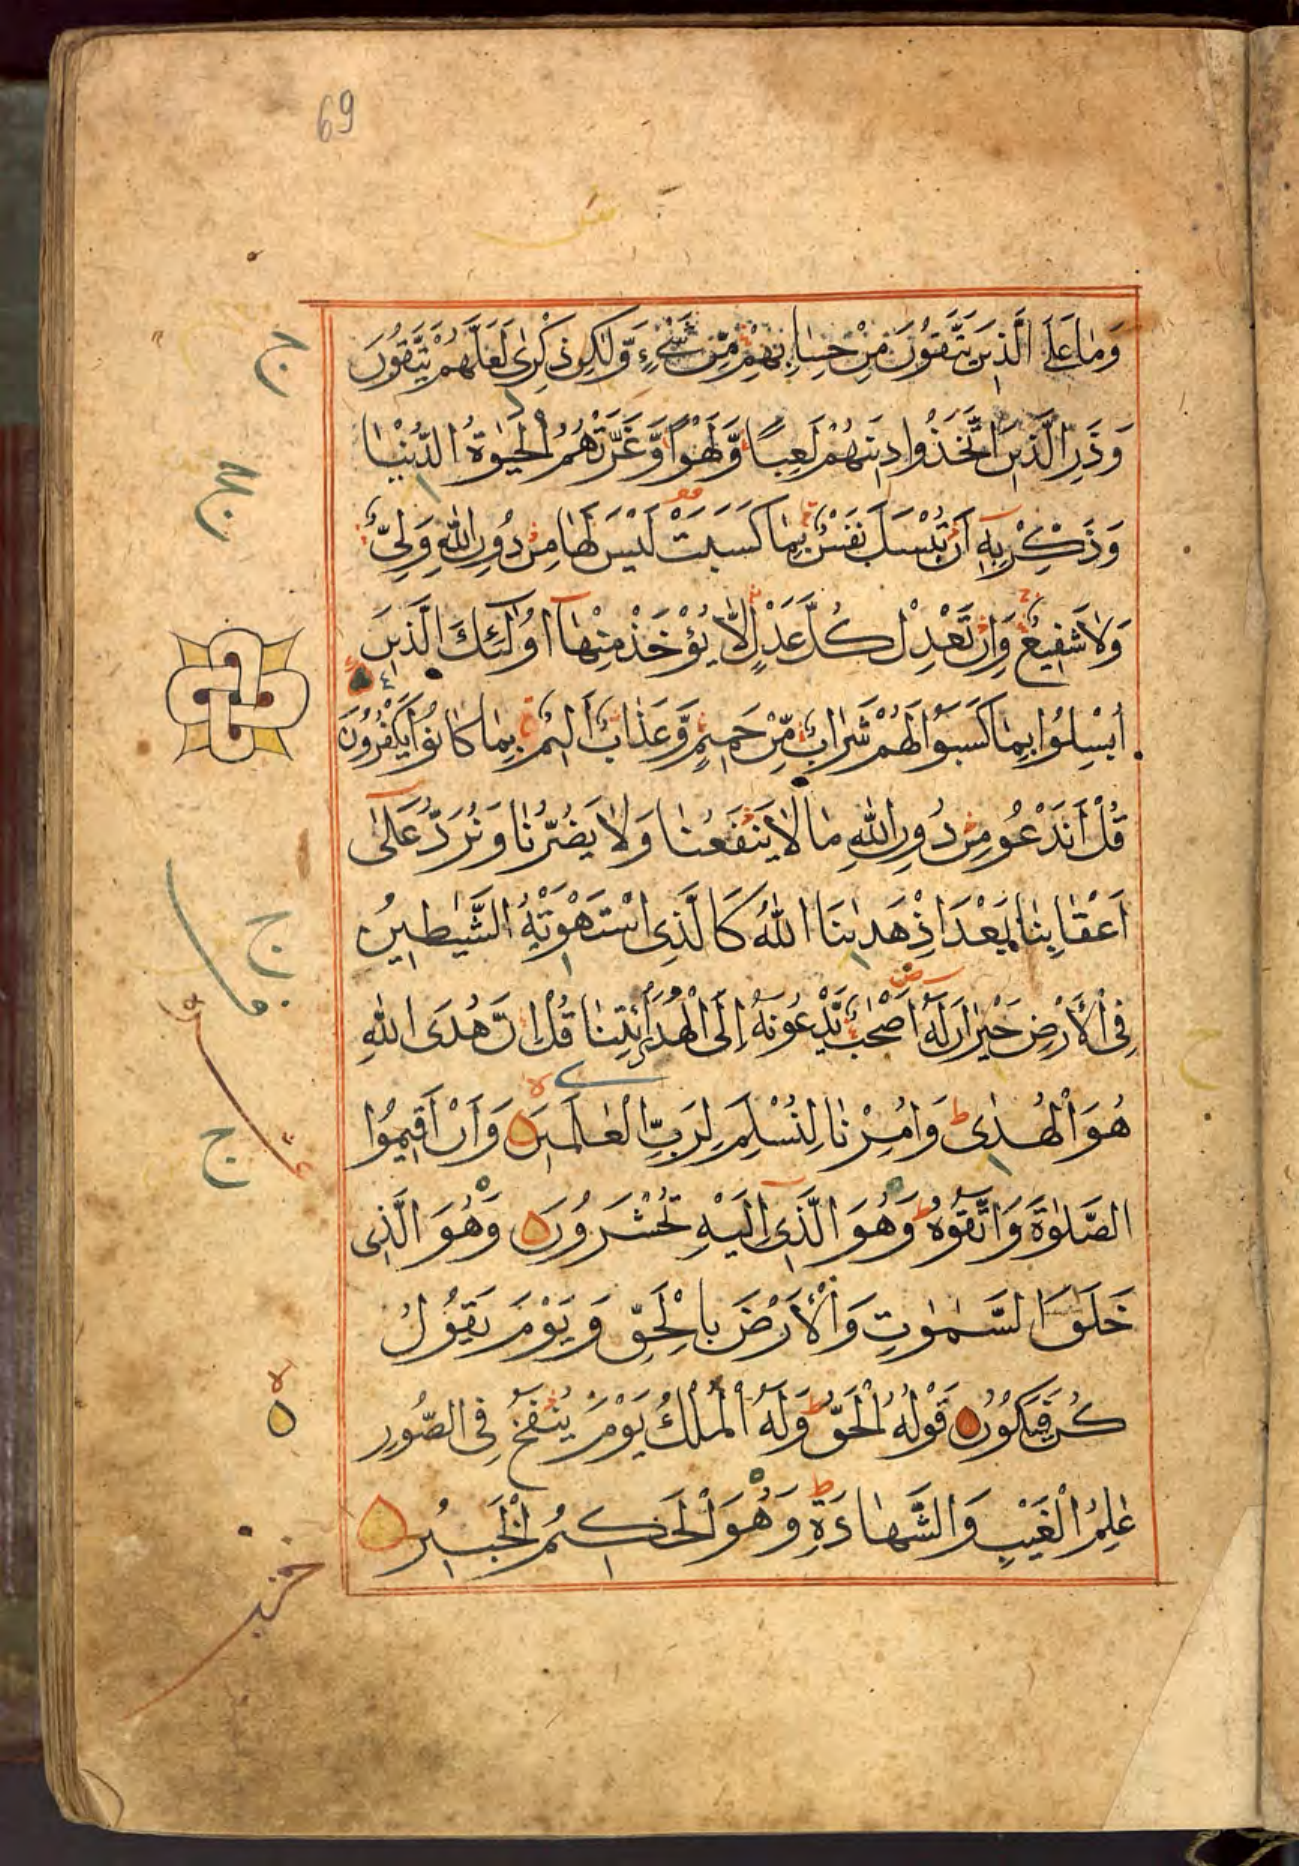 69
وَمَا عَلَى الَّذِينَ يَتَّقُونَ مِنْ حِسَابِهِمْ مِنْ شَيْءٍ وَّلٰكِنْ ذِكْرٰى لَعَلَّهُمْ يَتَّقُونَ
وَذَرِ الَّذِينَ اتَّخَذُوا دِينَهُمْ لَعِبًا وَّلَهْوًا وَّغَرَّتْهُمُ الْحَيٰوةُ الدُّنْيَا
وَذَكِّرْ بِهِ اَنْ تُبْسَلَ نَفْسٌ بِمَا كَسَبَتْ لَيْسَ لَهَا مِنْ دُونِ اللّٰهِ وَلِىٌّ
وَلَا شَفِيعٌ وَاِنْ تَعْدِلْ كُلَّ عَدْلٍ لَّا يُؤْخَذْ مِنْهَا اُولٰئِكَ الَّذِينَ
اُبْسِلُوا بِمَا كَسَبُوا لَهُمْ شَرَابٌ مِّنْ حَمِيمٍ وَّعَذَابٌ اَلِيمٌ بِمَا كَانُوا يَكْفُرُونَ
قُلْ اَنَدْعُو مِنْ دُونِ اللّٰهِ مَا لَا يَنْفَعُنَا وَلَا يَضُرُّنَا وَنُرَدُّ عَلٰى
اَعْقَابِنَا بَعْدَ اِذْ هَدٰينَا اللّٰهُ كَالَّذِى اسْتَهْوَتْهُ الشَّيٰطِينُ
فِى الْاَرْضِ حَيْرَانَ لَهُ اَصْحٰبٌ يَّدْعُونَهُ اِلَى الْهُدَى ائْتِنَا قُلْ اِنَّ هُدَى اللّٰهِ
هُوَ الْهُدٰى وَاُمِرْنَا لِنُسْلِمَ لِرَبِّ الْعٰلَمِينَ وَاَنْ اَقِيمُوا
الصَّلٰوةَ وَاتَّقُوهُ وَهُوَ الَّذِى اِلَيْهِ تُحْشَرُونَ وَهُوَ الَّذِى
خَلَقَ السَّمٰوٰتِ وَالْاَرْضَ بِالْحَقِّ وَيَوْمَ يَقُولُ
كُنْ فَيَكُونُ قَوْلُهُ الْحَقُّ وَلَهُ الْمُلْكُ يَوْمَ يُنْفَخُ فِى الصُّورِ
عٰلِمُ الْغَيْبِ وَالشَّهَادَةِ وَهُوَ الْحَكِيمُ الْخَبِيرُ